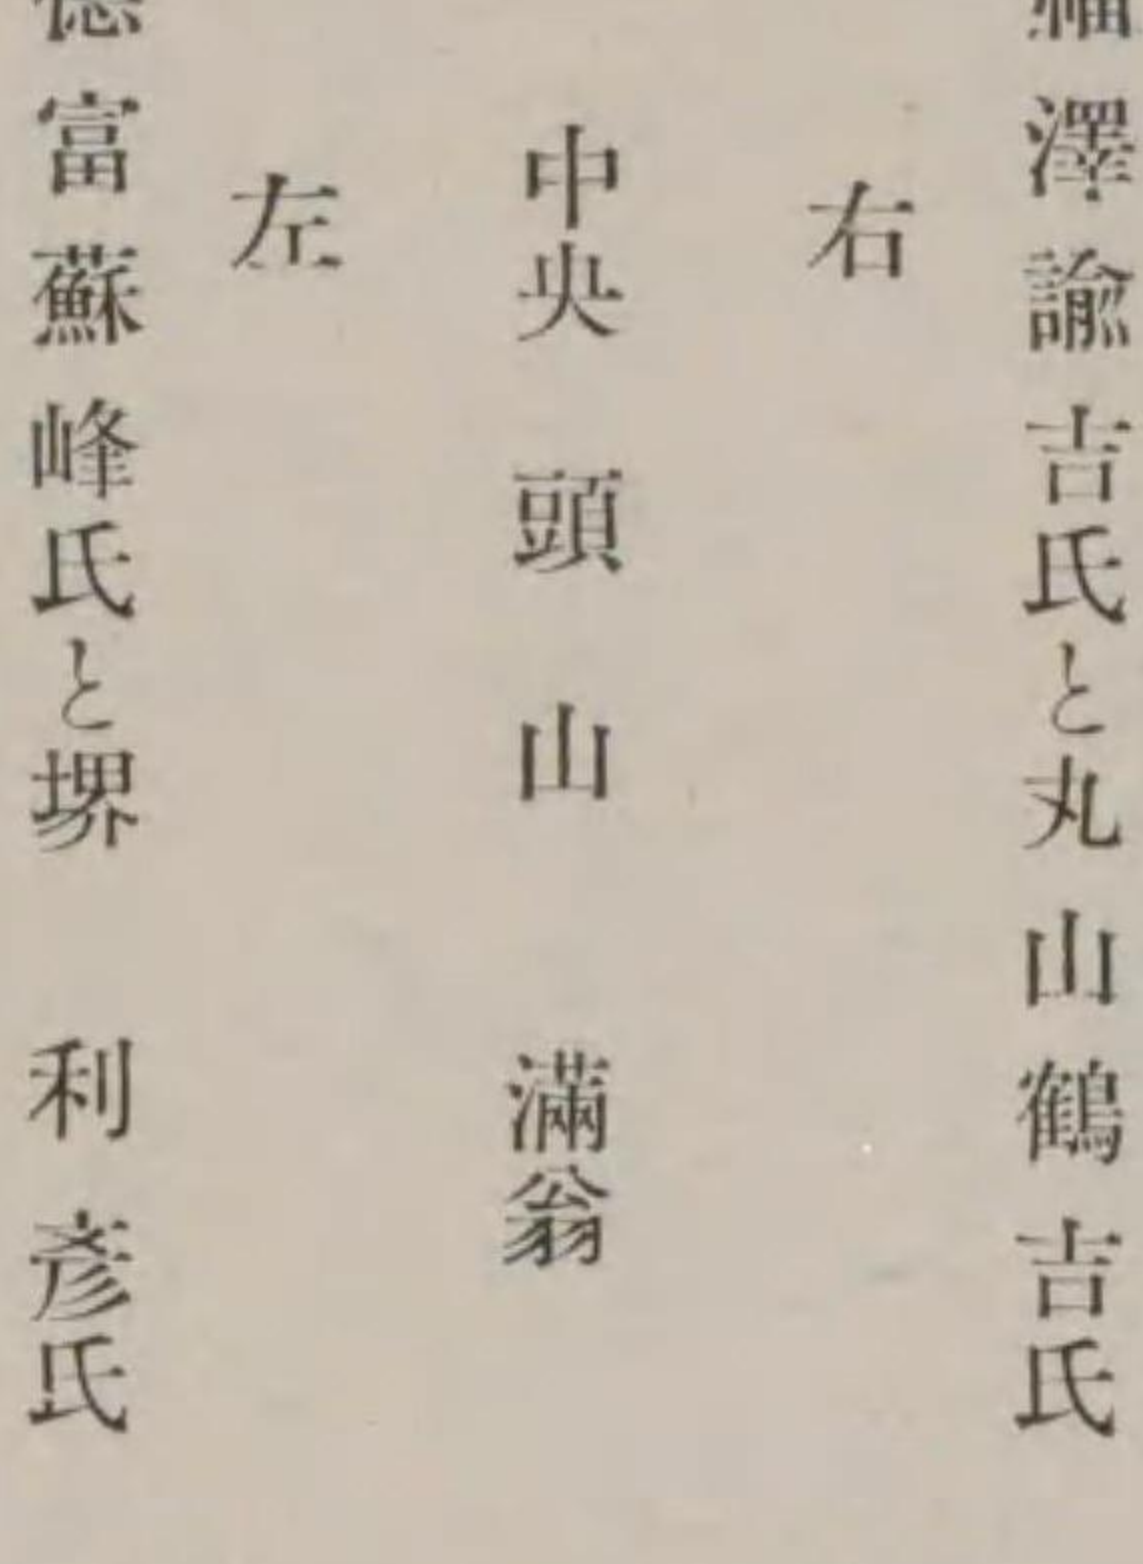 福澤諭吉氏と丸山鶴吉氏
右
中央 頭山 滿翁
左
德富蘇峰氏と堺 利彥氏